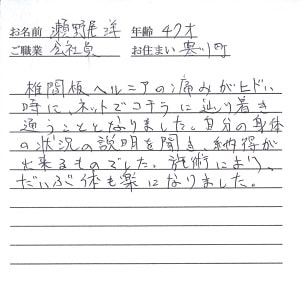 お名前 瀬野尾 洋 年齢 47才
ご職業 会社員 お住まい 寒川町
椎間板ヘルニアの痛みがヒドい
時に、ネットでコチラに辿り着き
通うこととなりました。自分の身体
の状況の説明を聞き、納得が
出来るものでした。施術により、
だいぶ体も楽になりました。